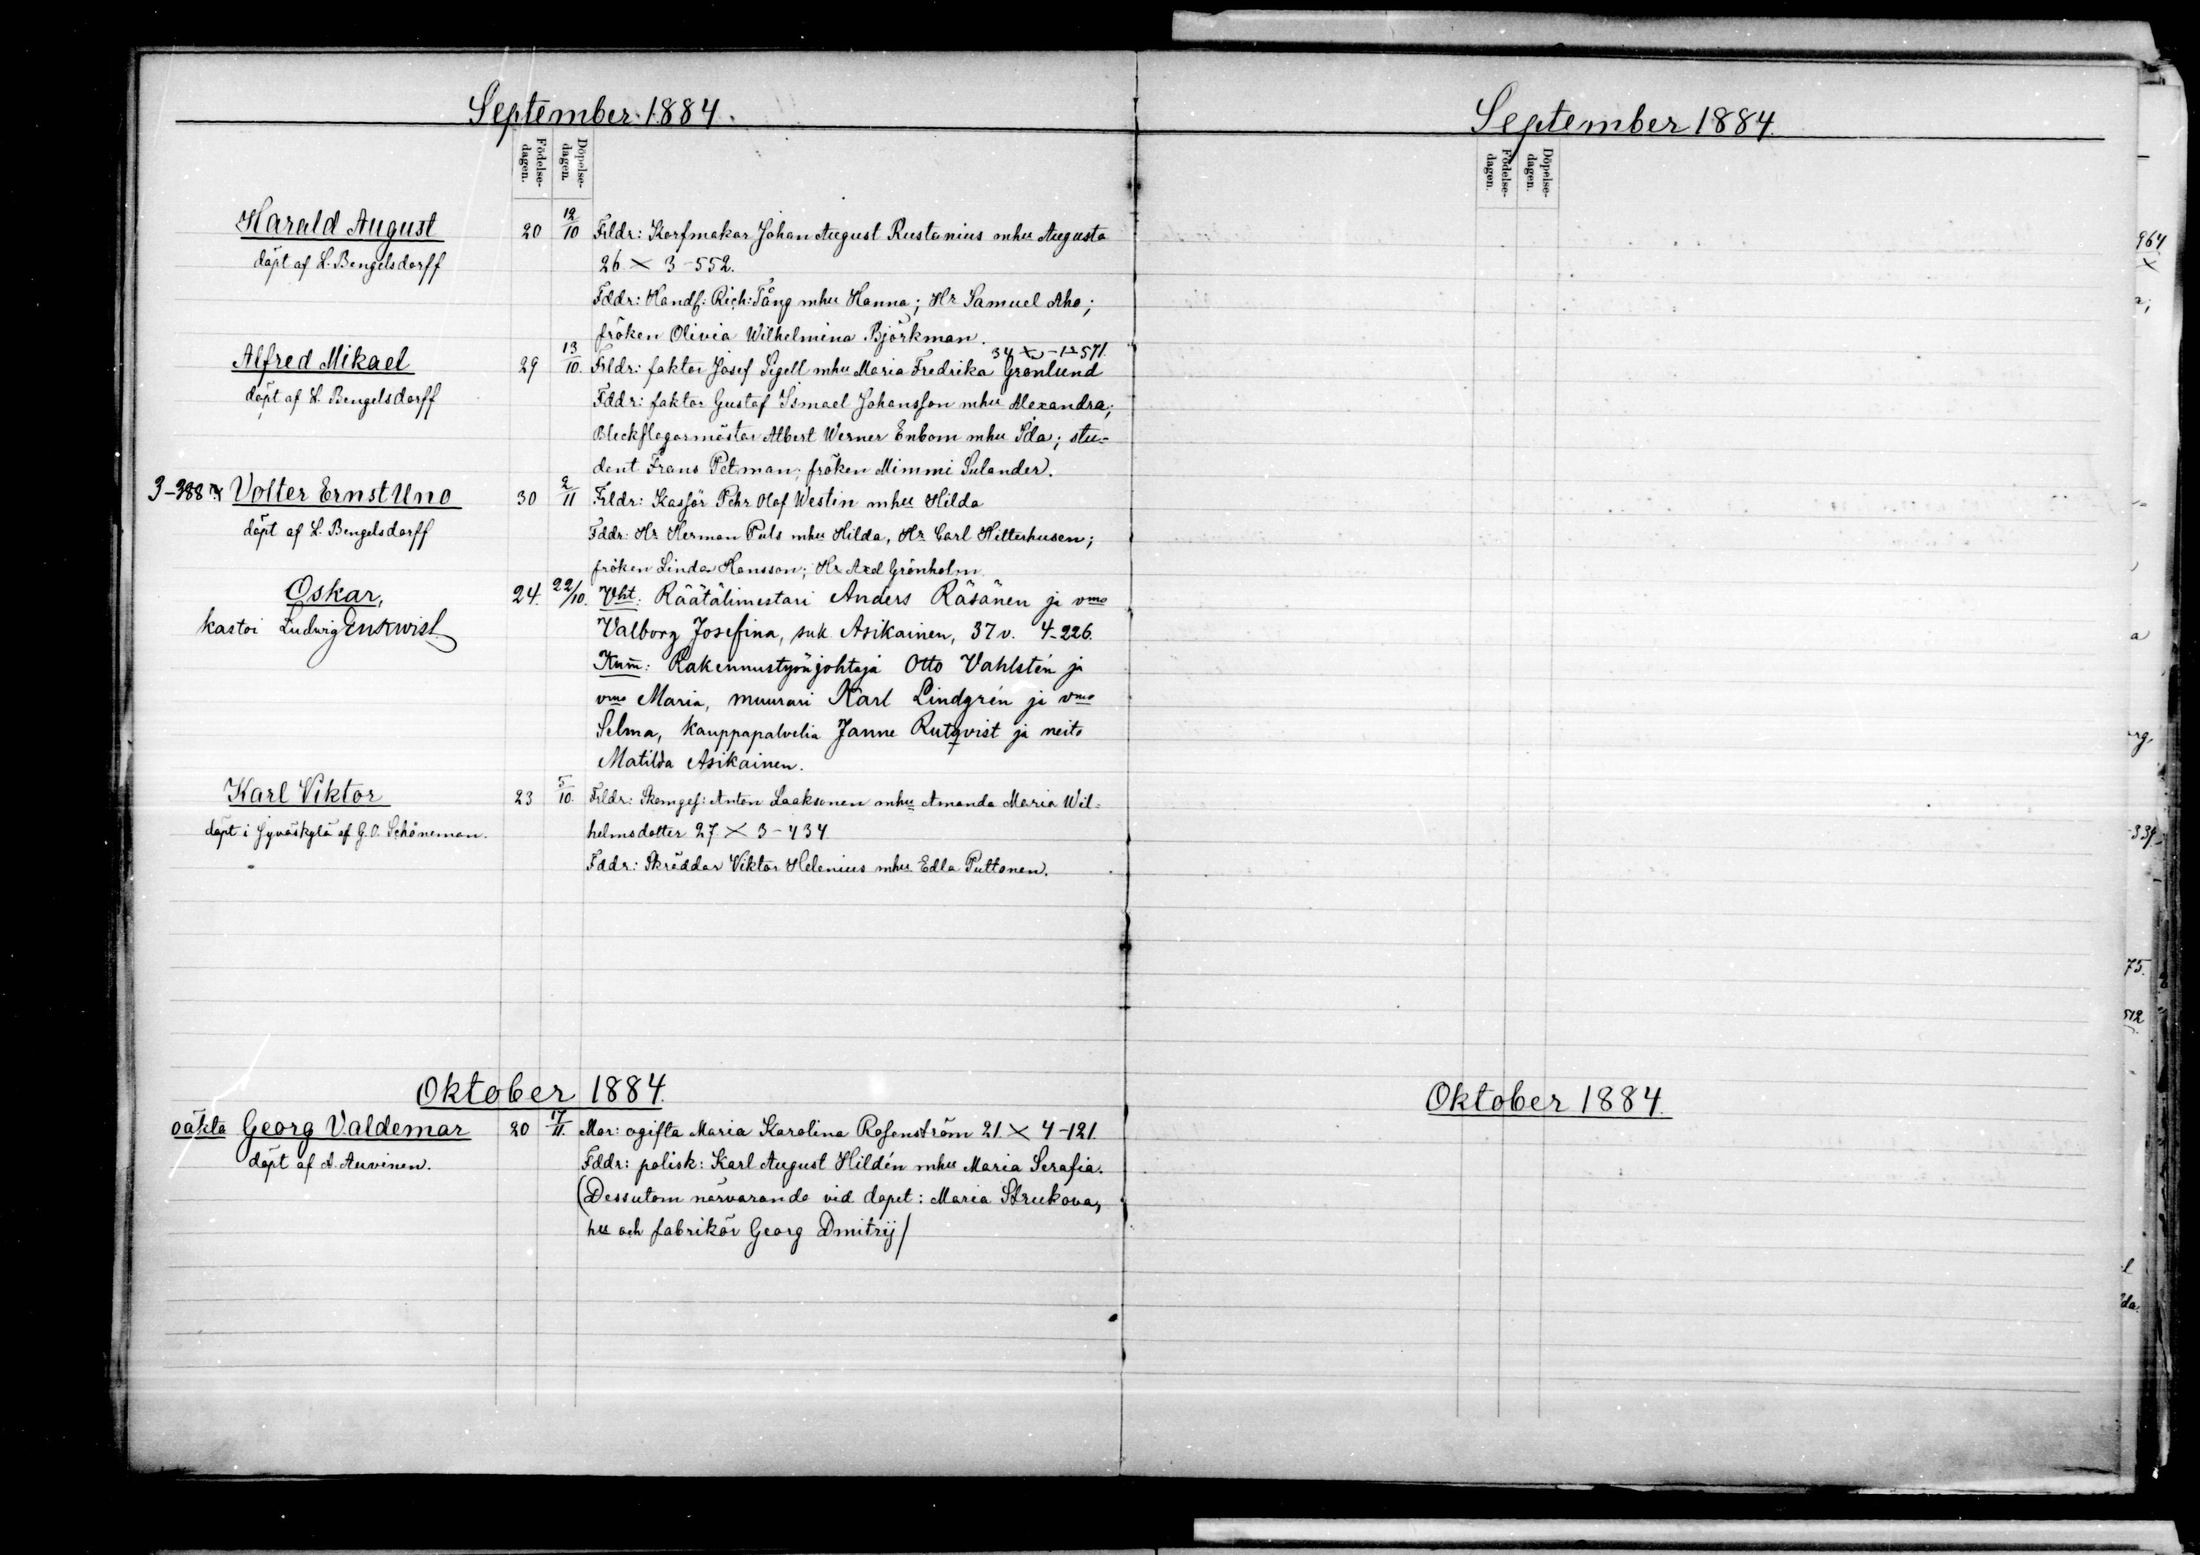 September 1884.
Födelse-
dagen.
Döpelse-
dagen.
Harald August
döpt af L. Bengelsdorff
20 12/10 Frldr: Korfmakar Johan August Rustanius mhu Augusta
26 × 3-552.
Fddr: Handl: Rich: Tång mhu Hanna; Hr Samuel Aho;
fröken Olivia Wilhelmina Björkman.
34 × -12571.
Alfred Mikael
döpt af L. Bengelsdorff
29 13/10. Frldr: faktor Josef Sigell mhu Maria Fredrika Grönlund
Fddr: faktor Gustaf Ismael Johansson mhu Alexandra;
Bleckslagarmästar Albert Werner Enbom mhu Ida; stu-
dent Frans Petman; fröken Mimmi Sulander.
3-388 Volter Ernst Uno
döpt af L. Bengelsdorff
30 2/11 Frldr: Kassör Pehr Olof Westin mhu Hilda
Fddr: Hr Herman Puls mhu Hilda, Hr Carl Hitterhusen;
fröken Linda Hansson; Hr Axel Grönholm
Oskar,
kastoi Ludwig Enkwist
24. 22/10. Vht: Räätälimestari Anders Räsänen ja vmo
Valborg Josefina, suk. Asikainen, 37 v. 4-226.
Kum: Rakennustyönjohtaja Otto Vahlstén ja
vmo Maria, muurari Karl Lindgrén ja vmo
Selma, kauppapalvelia Janne Rutqvist ja neito
Matilda Asikainen.
Karl Viktor
döpt i Jyväskylä af G. O. Schöneman.
23 5/10. Frldr: Skomgef: Anton Laaksonen mhu Amanda Maria Wil-
helmsdotter 27 × 3-434
Fddr: Skräddar Viktor Helenius mhu Edla Puttonen.
Oktober 1884.
oäkta Georg Valdemar
döpt af A. Auvinen.
20 17/11. Mor: ogifta Maria Karolina Rosenström 21. × 4-121.
Fddr: polisk: Karl August Hildén mhu Maria Serafia.
(Dessutom närvarande vid dopet: Maria Strukova,
hu och fabrikör Georg Dmitrij)
September 1884.
Födelse-
dagen.
Döpelse-
dagen.
Oktober 1884.
964
×
339
75.
512